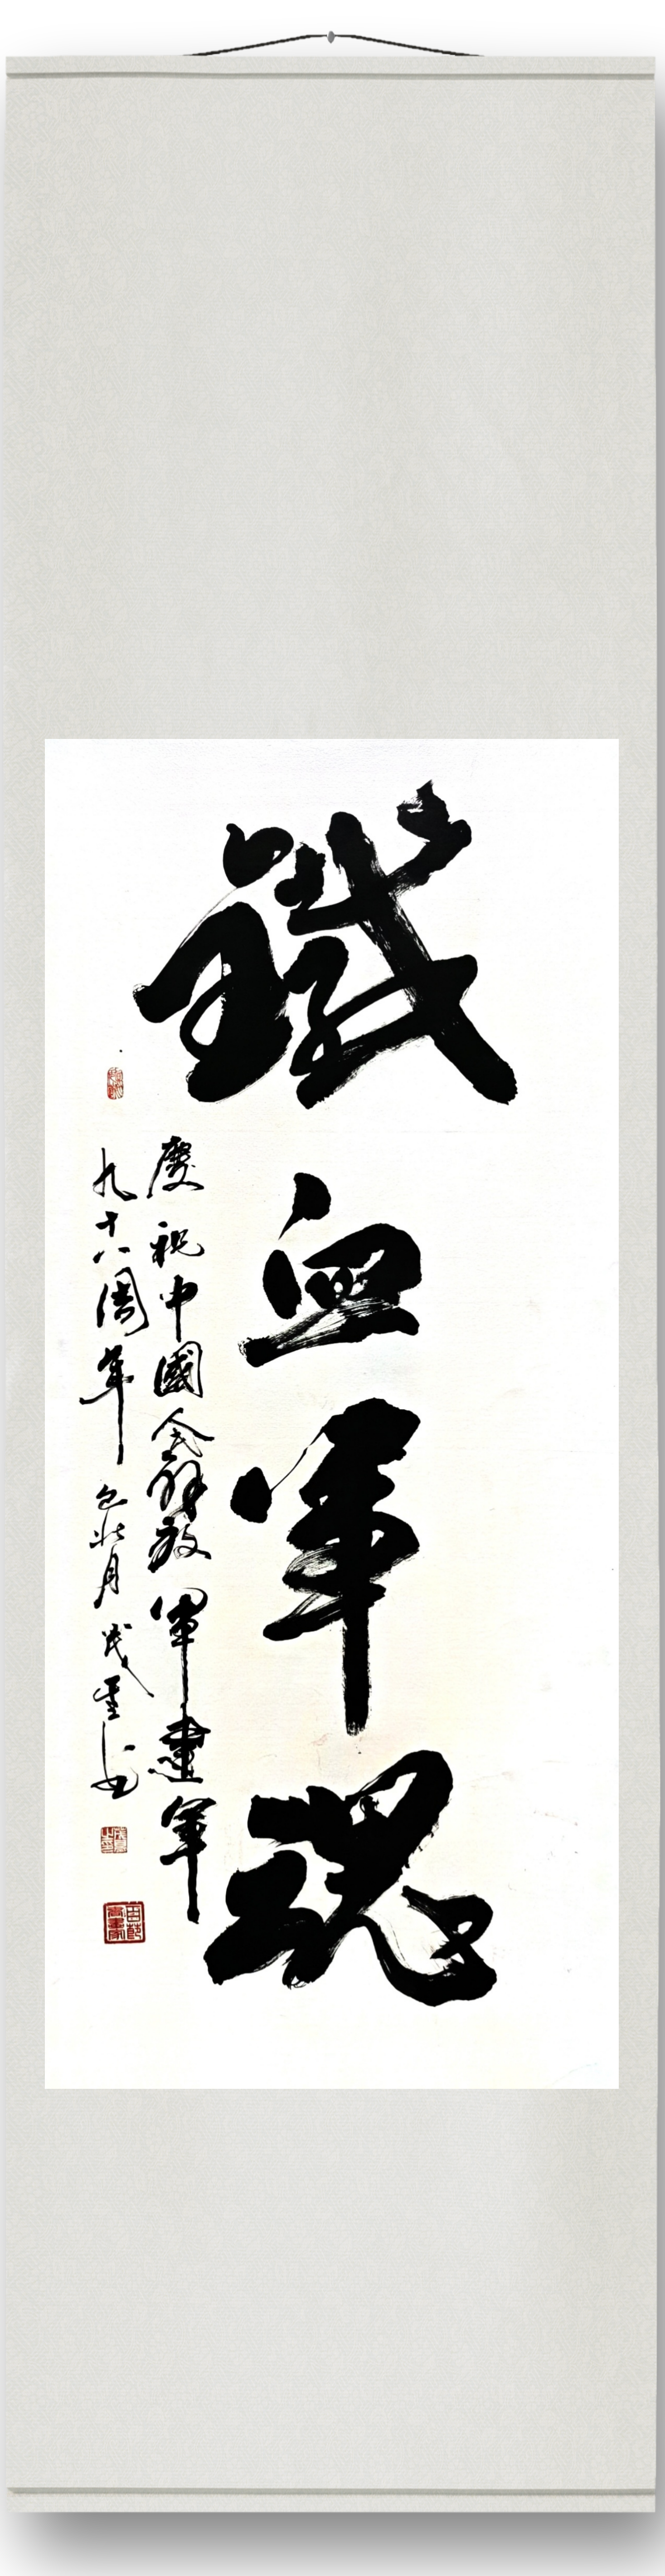 鐵血軍魂
慶祝中國人民解放軍建軍
九十八周年 乙巳壮月